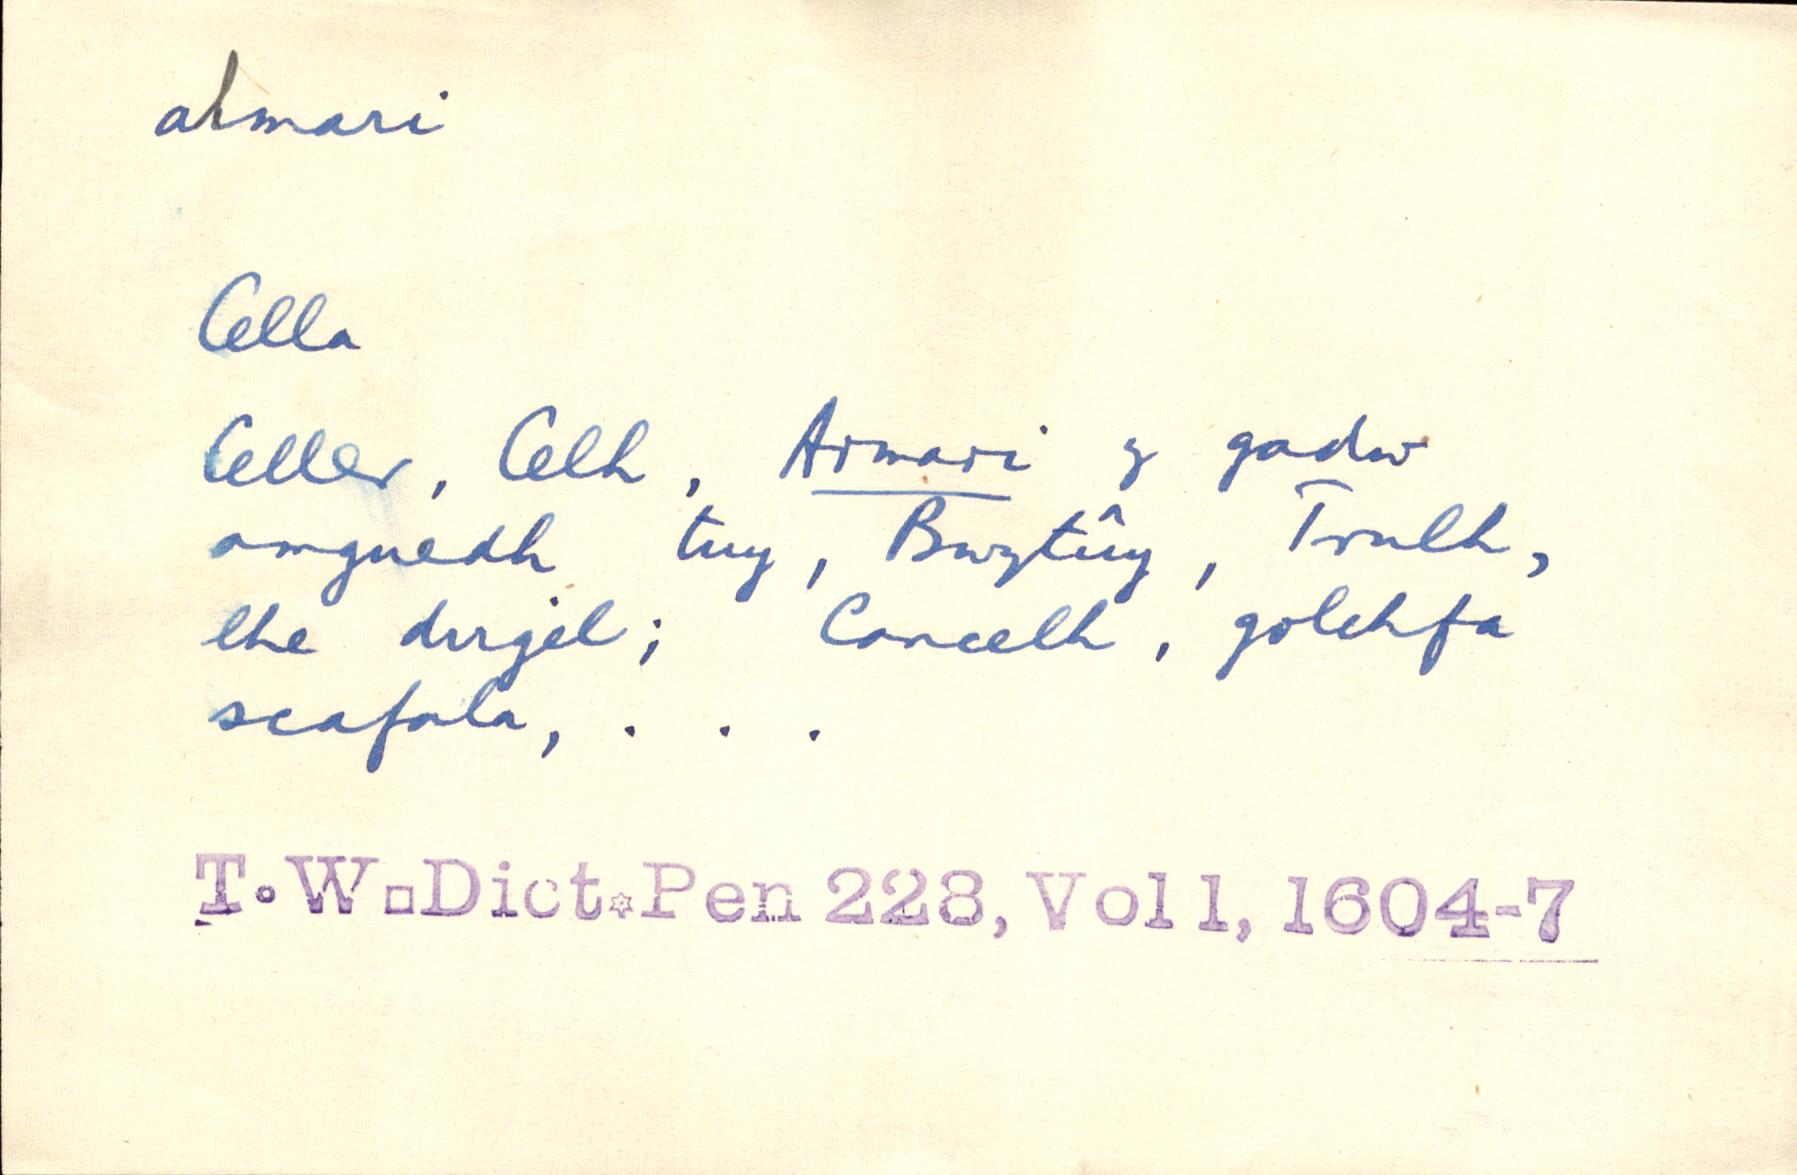 almari
Cella
Celler, Celh, Armari y gadw
amguedh tuy, Bwytûy, Trulh,
lhe dirgel; Concelh, golchfa
scafala, . . .
T.W. Dict. Pen 228, Vol 1, 1604-7